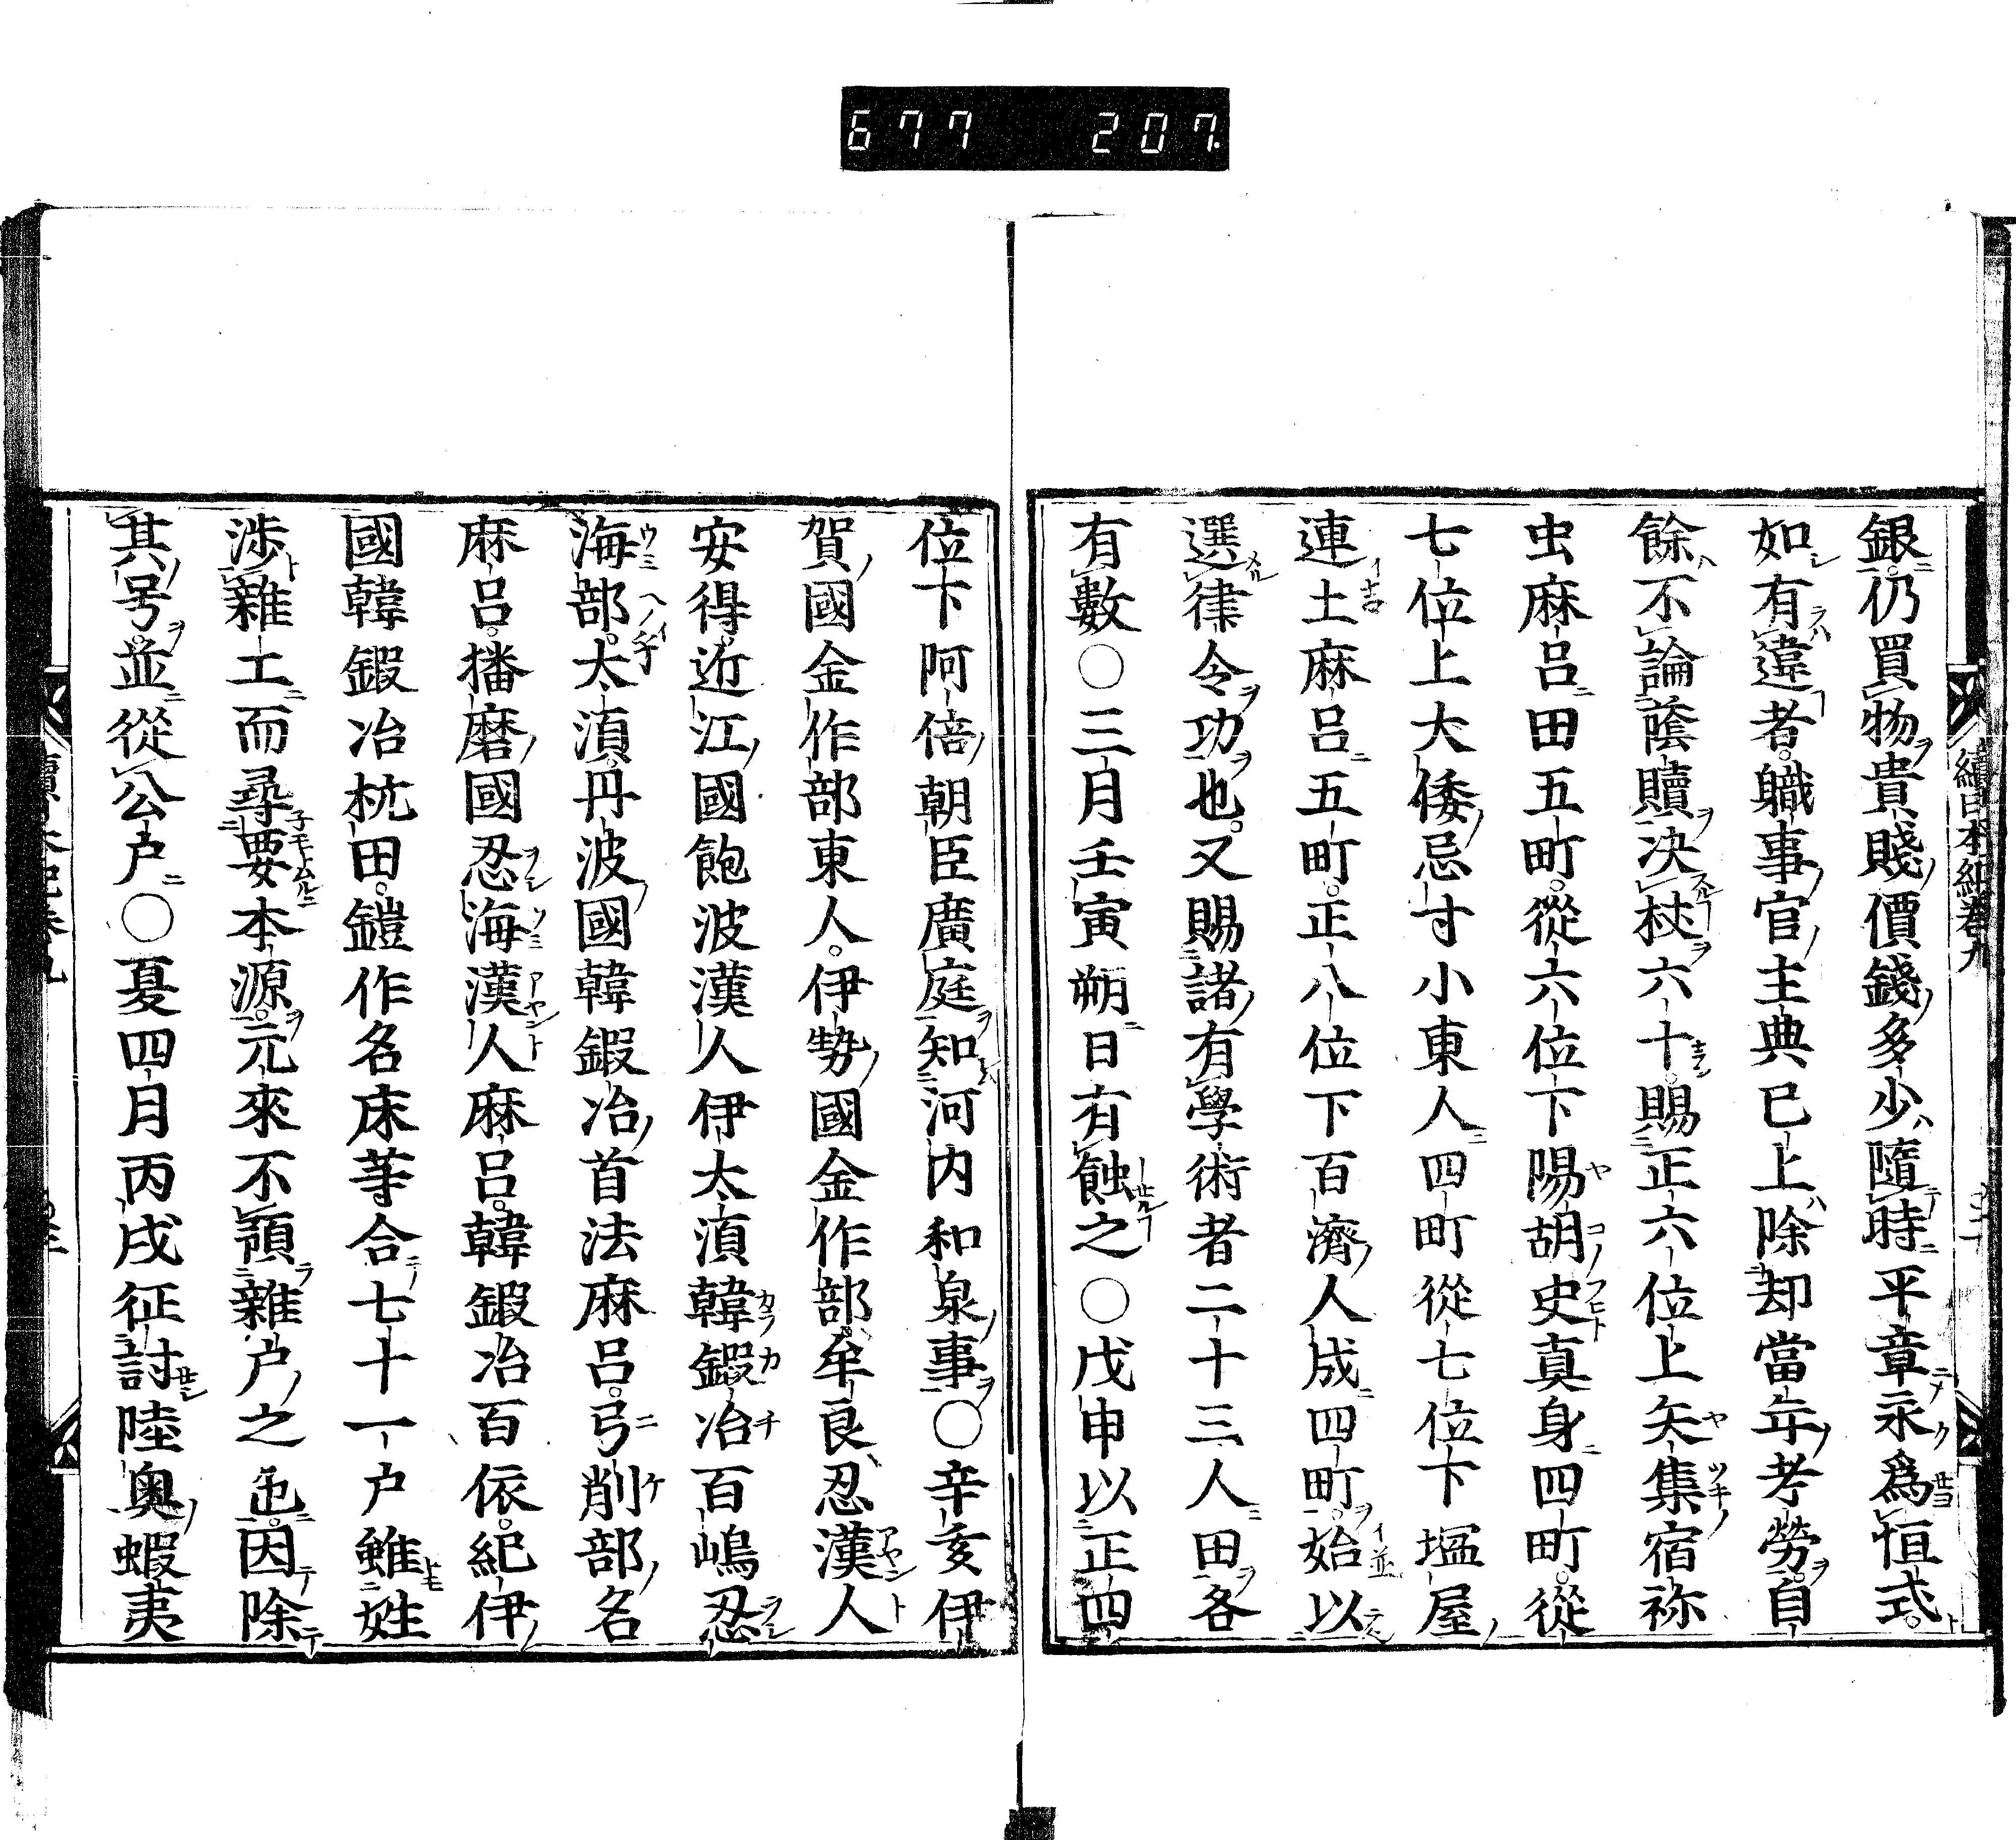 677 207.
續日本紀卷九
銀仍買物貴賤價錢多少隨時平章永爲恒式
如有違者職事官主典已上除却當年考勞自
餘不論蔭贖決杖六十賜正六位上矢集宿祢
虫麻呂田五町從六位下陽胡史真身四町從
七位上大倭忌寸小東人四町從七位下塩屋
連土麻呂五町正八位下百濟人成四町始以
選律令功也又賜諸有學術者二十三人田各
有數〇三月壬寅朔日有蝕之〇戊申以正四
位下阿倍朝臣廣庭知河内和泉事〇辛亥伊
賀國金作部東人伊勢國金作部牟良忍漢人
安得近江國飽波漢人伊太須韓鍛冶百嶋忍
海部太須丹波國韓鍛冶首法麻呂弓削部名
麻呂播磨國忍海漢人麻呂韓鍛冶百依紀伊
國韓鍛冶杭田鎧作名床等合七十一户雖姓
渉雜工而尋要本源元來不預雜户之色因除
其号並從公户〇夏四月丙戌征討陸奥蝦夷